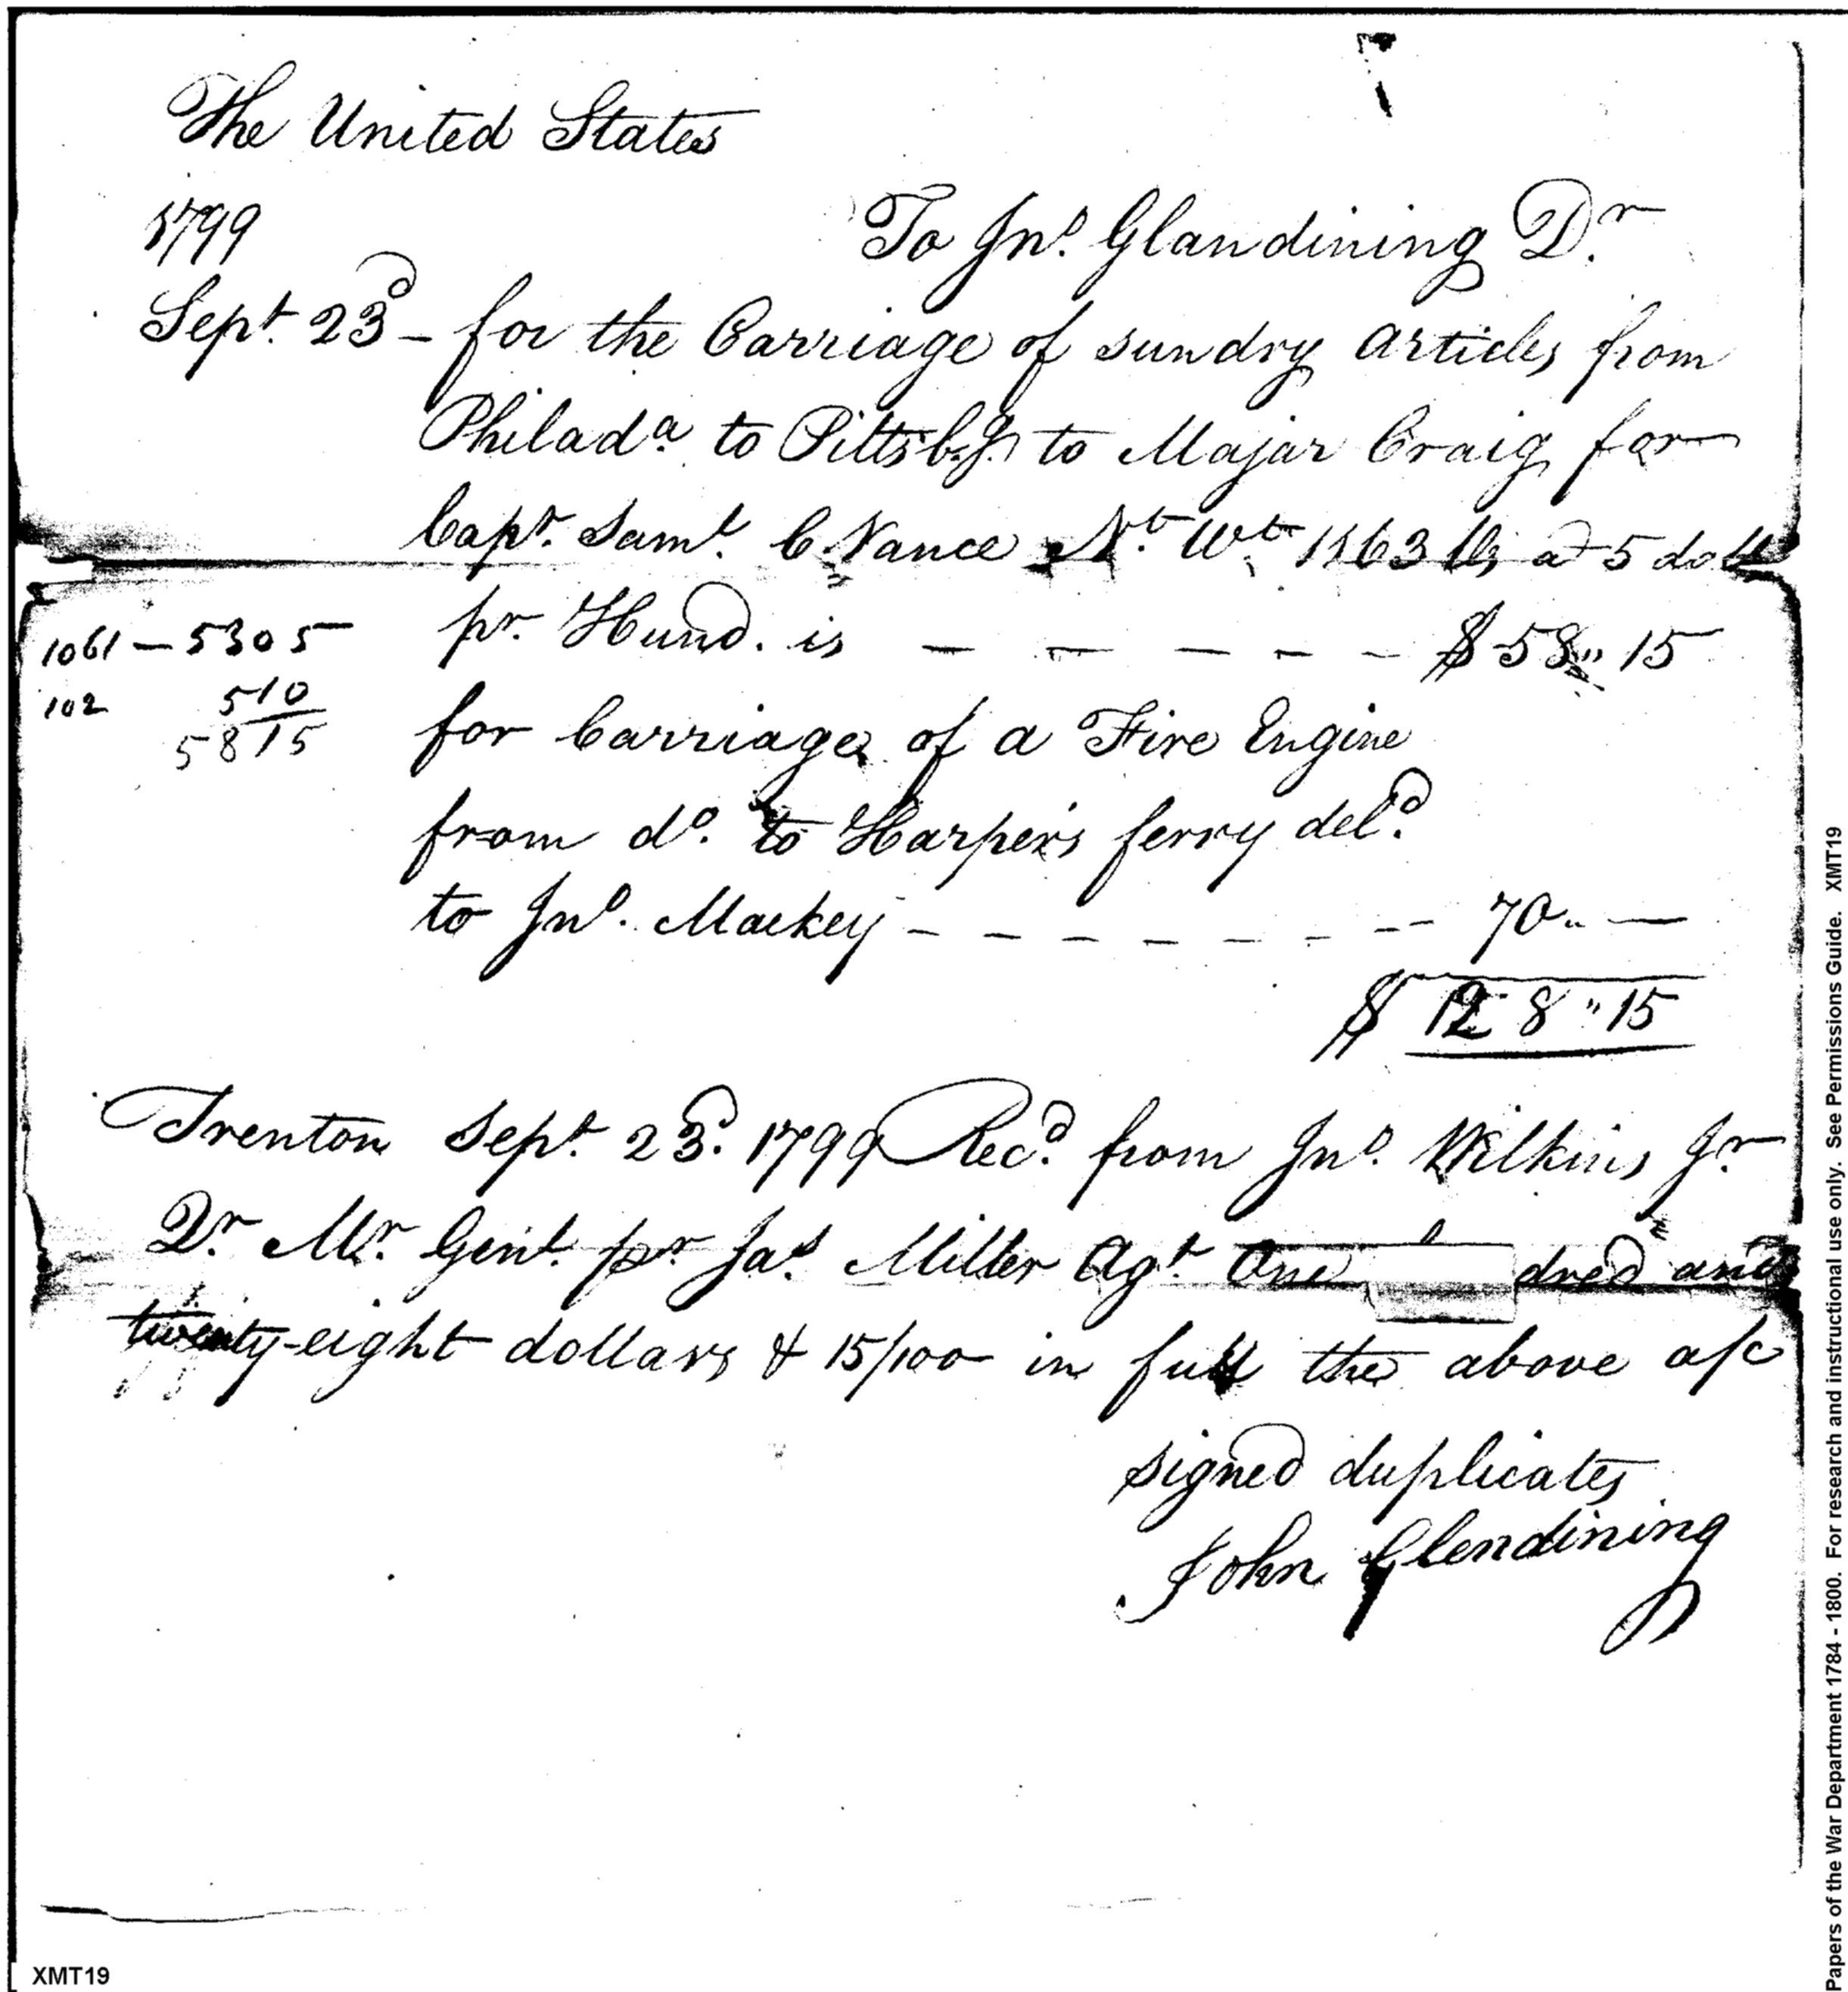 The United States
1799
To Jno. Glandining Dr.
Sept. 23d – for the Carriage of sundry articles from
Philada. to Pittsbg. to Major Craig for
Capt. Saml. C Vance Nt. Wt. 1163 lb a 5 dolls
pr. Hund. is – – – – – $ 58,, 15
1061 – 5305
102 510
5815
for Carriage of a Fire Engine
from do. to Harper's ferry deld.
to Jno. Mackey – – – – – – – 70 ,, —
$ 128 ,, 15
Trenton Sept. 23d. 1799 Recd. from Jno. Wilkins Jr.
Qr. Mr. Genl. pr Jas. Miller Agt. One dred and
twenty-eight dollars & 15/100 in full the above a/c
signed duplicates
John Glendining
XMT19
Papers of the War Department 1784 - 1800. For research and instructional use only. See Permissions Guide. XMT19